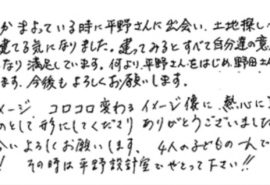 かまよっている時に平野さんに出会い、土地探し
建てる気になりました。建ってみるとすべて自分達の意
なり満足しています。何より、平野さんをはじめ、野田
ます。今後もよろしくお願いします。
メージ コロコロ変わる イメージ像に 熱心に
のとして 形にしてくださり ありがとうございました
いよろしくお願いします。 4人の子どもの
! その時は平野設計室でやって下さい!!